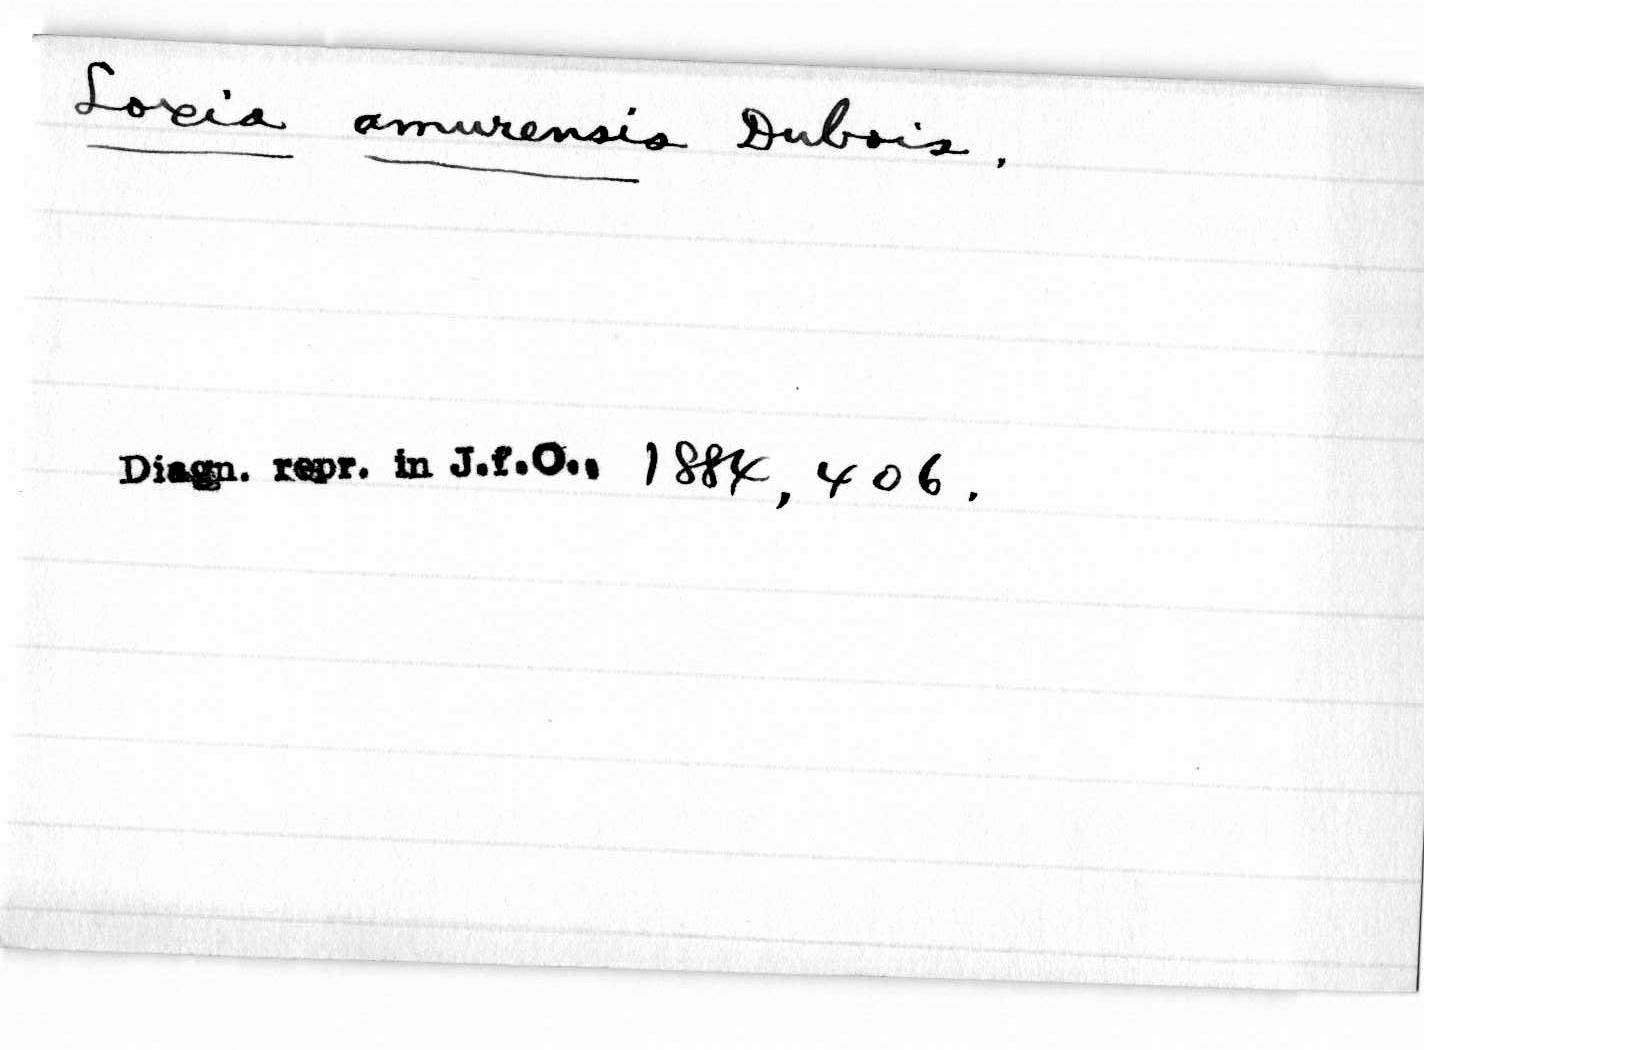 Loxia amurensis Dubois.
Diagn. repr. in J.f.O., 1884, 406.